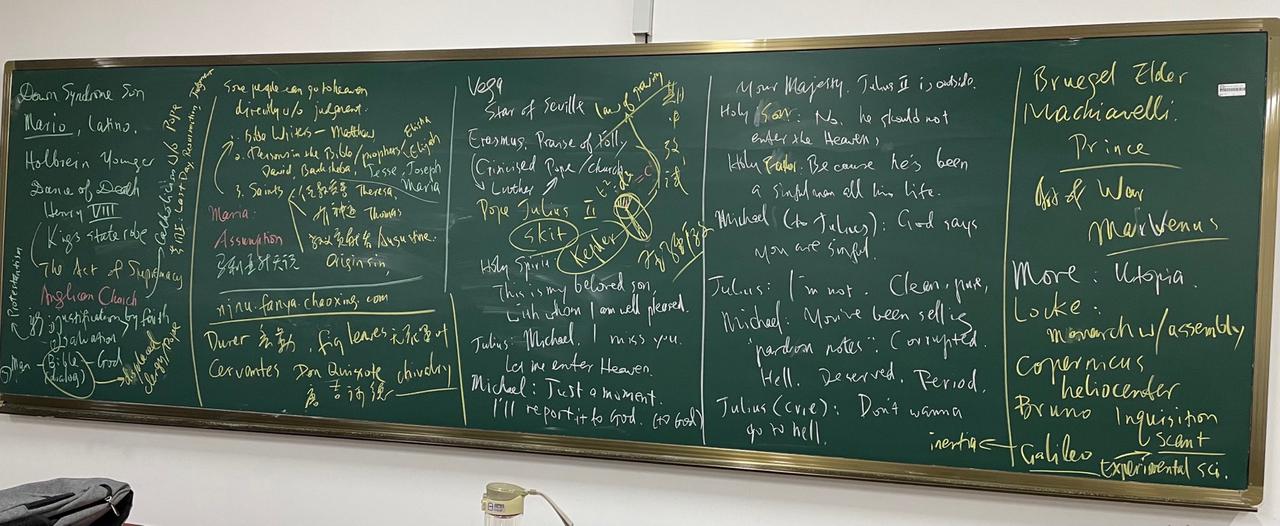 Down Syndrome Son
Mario, Latino.
Holbein Younger
Dance of Death
Henry VIII
King's state robe
The Act of Supremacy
Anglican Church
justification by faith
salvation
Man - Bible - God
(dialog)
clergy/Pope
Protestantism
Catholicism w/o Pope
Last Day, Resurrection, Judgment
Some people can go to heaven
directly w/o judgment.
1. Bible Writers - Matthew
2. Persons in the Bible/prophets
Elisha
Elijah
David, Bathsheba, Jesse, Joseph
Maria
3. Saints
Theresa
Thomas
Augustine
Origin sin
Maria:
Assumption
njnu.fanya.chaoxing.com
Durer 丢勒, fig leaves
Cervantes Don Quixote chivalry
唐吉诃德
Vega
Star of Seville
Erasmus, Praise of Folly
Criticised Pope/church
Luther
Pope Julius II
Skit
Kepler
Holy Spirit:
This is my beloved son,
with whom I am well pleased.
Julius: Michael, I miss you.
Let me enter Heaven.
Michael: Just a moment.
I'll report it to God. (to God)
Your Majesty, Julius II is outside.
Holy Son: No, he should not
enter the Heaven,
Holy Father: Because he's been
a sinful man all his life.
Michael (to Julius): God says
you are sinful.
Julius: I'm not. Clean, pure,
Michael: You've been selling
"pardon notes". Corrupted.
Hell. Deserved. Period.
Julius (cries): Don't wanna
go to hell.
Bruegel Elder
Machiavelli.
Prince
Art of War
Mars Venus
More: Utopia.
Locke:
monarch w/ assembly
Copernicus
heliocenter
Bruno Inquisition
inertia ← Galileo
experimental sci.